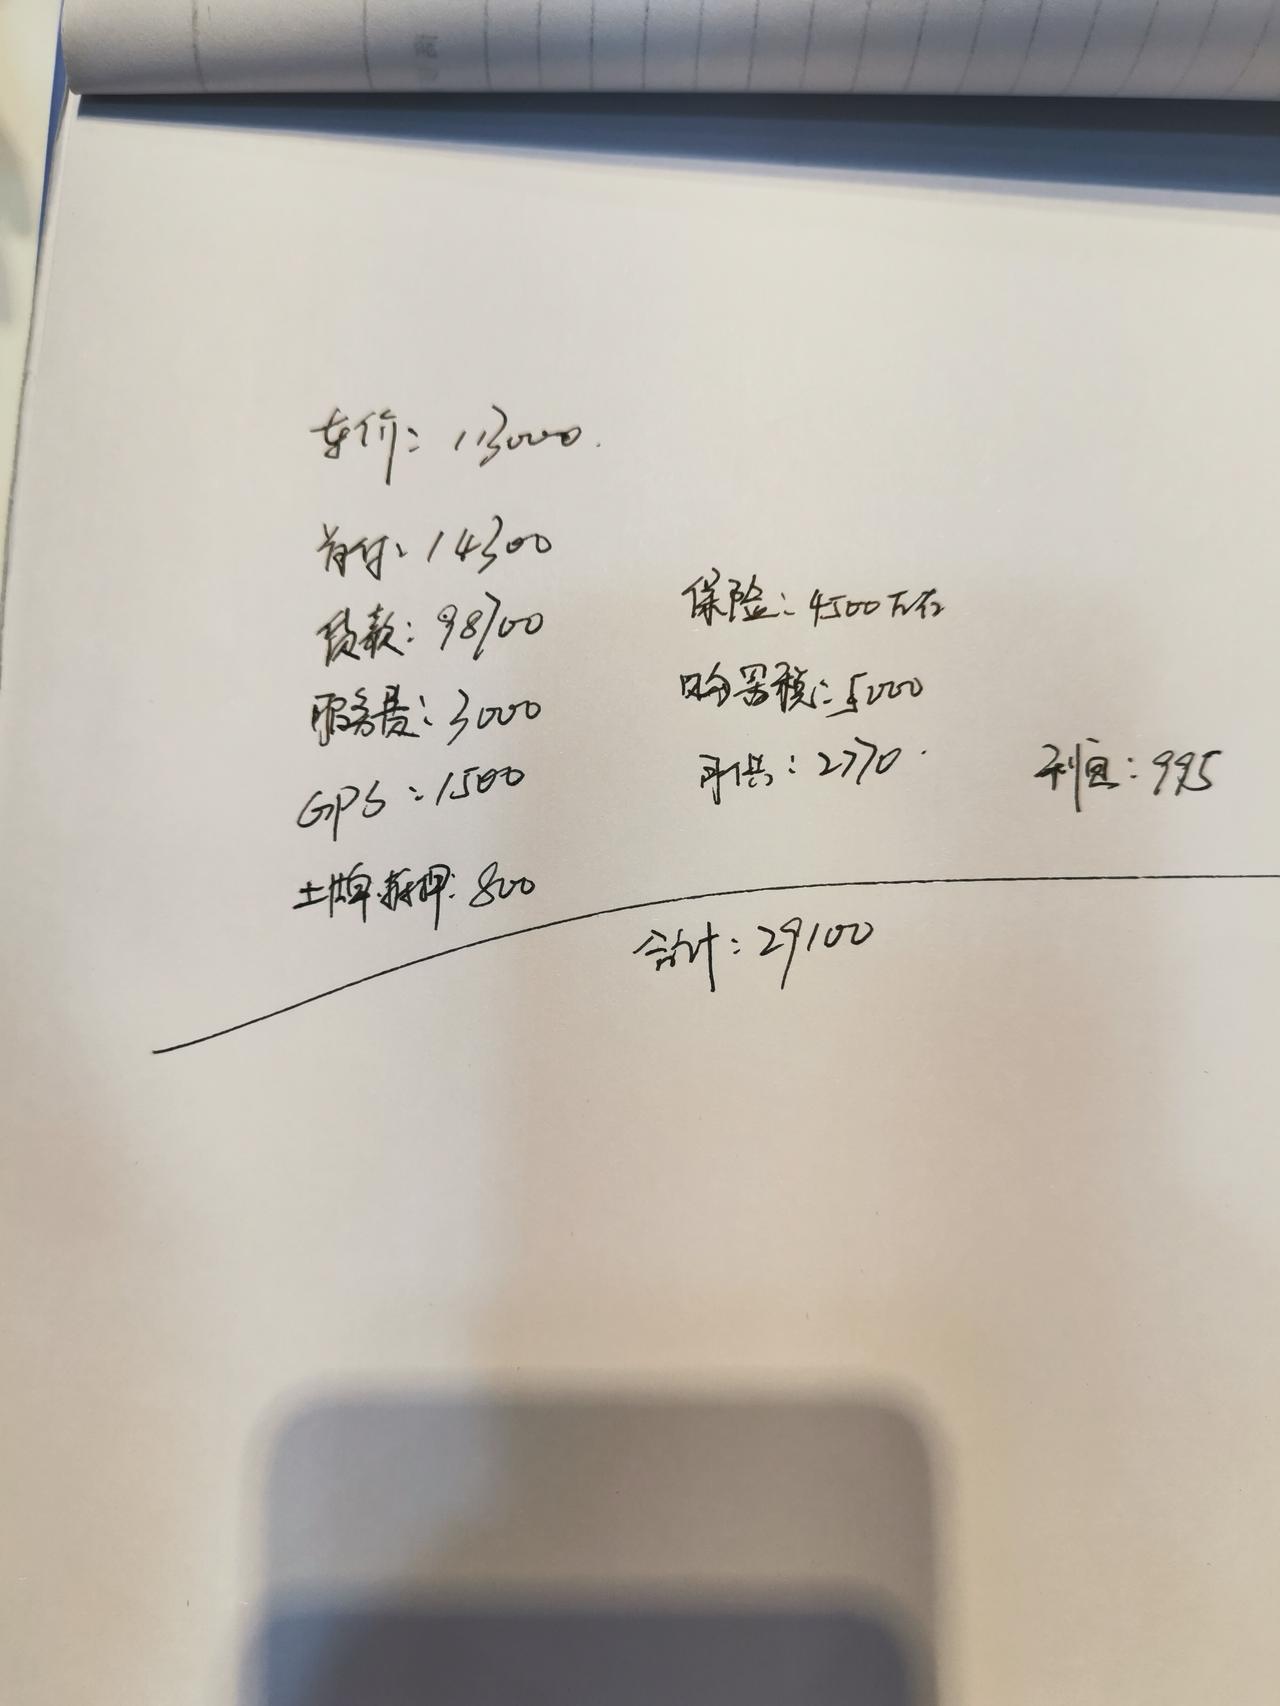 车价：113000.
首付：14300
贷款：98700
服务费：3000
GPS：1500
上牌.抵押：800
保险：4500左右
购置税：5000
月供：2770.
利息：995
合计：29100